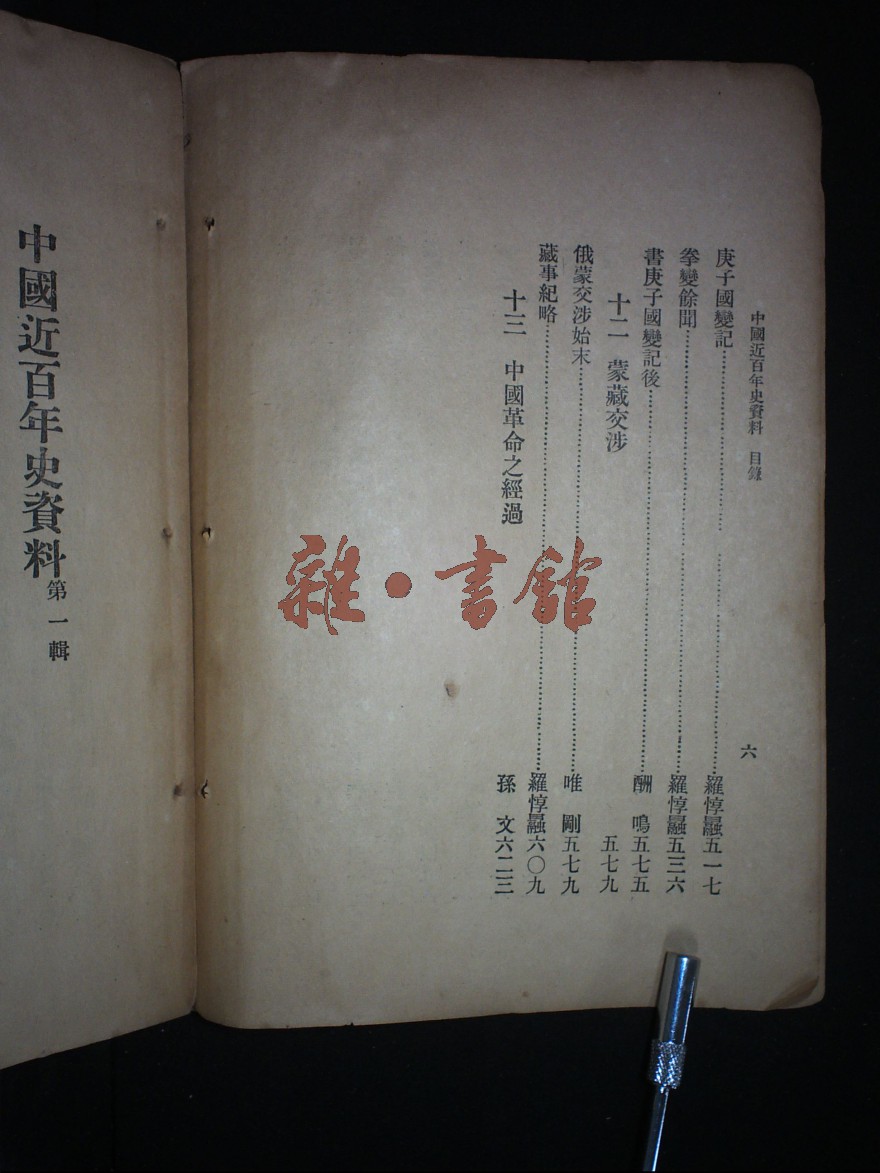 中國近百年史資料 目錄
六
庚子國變記……羅惇曧五一七
拳變餘聞……羅惇曧五三六
書庚子國變記後……酬鳴五七五
十二 蒙藏交涉 五七九
俄蒙交涉始末……唯剛五七九
藏事紀略……羅惇曧六〇九
十三 中國革命之經過 孫文六二三
中國近百年史資料 第一輯
雜·書館